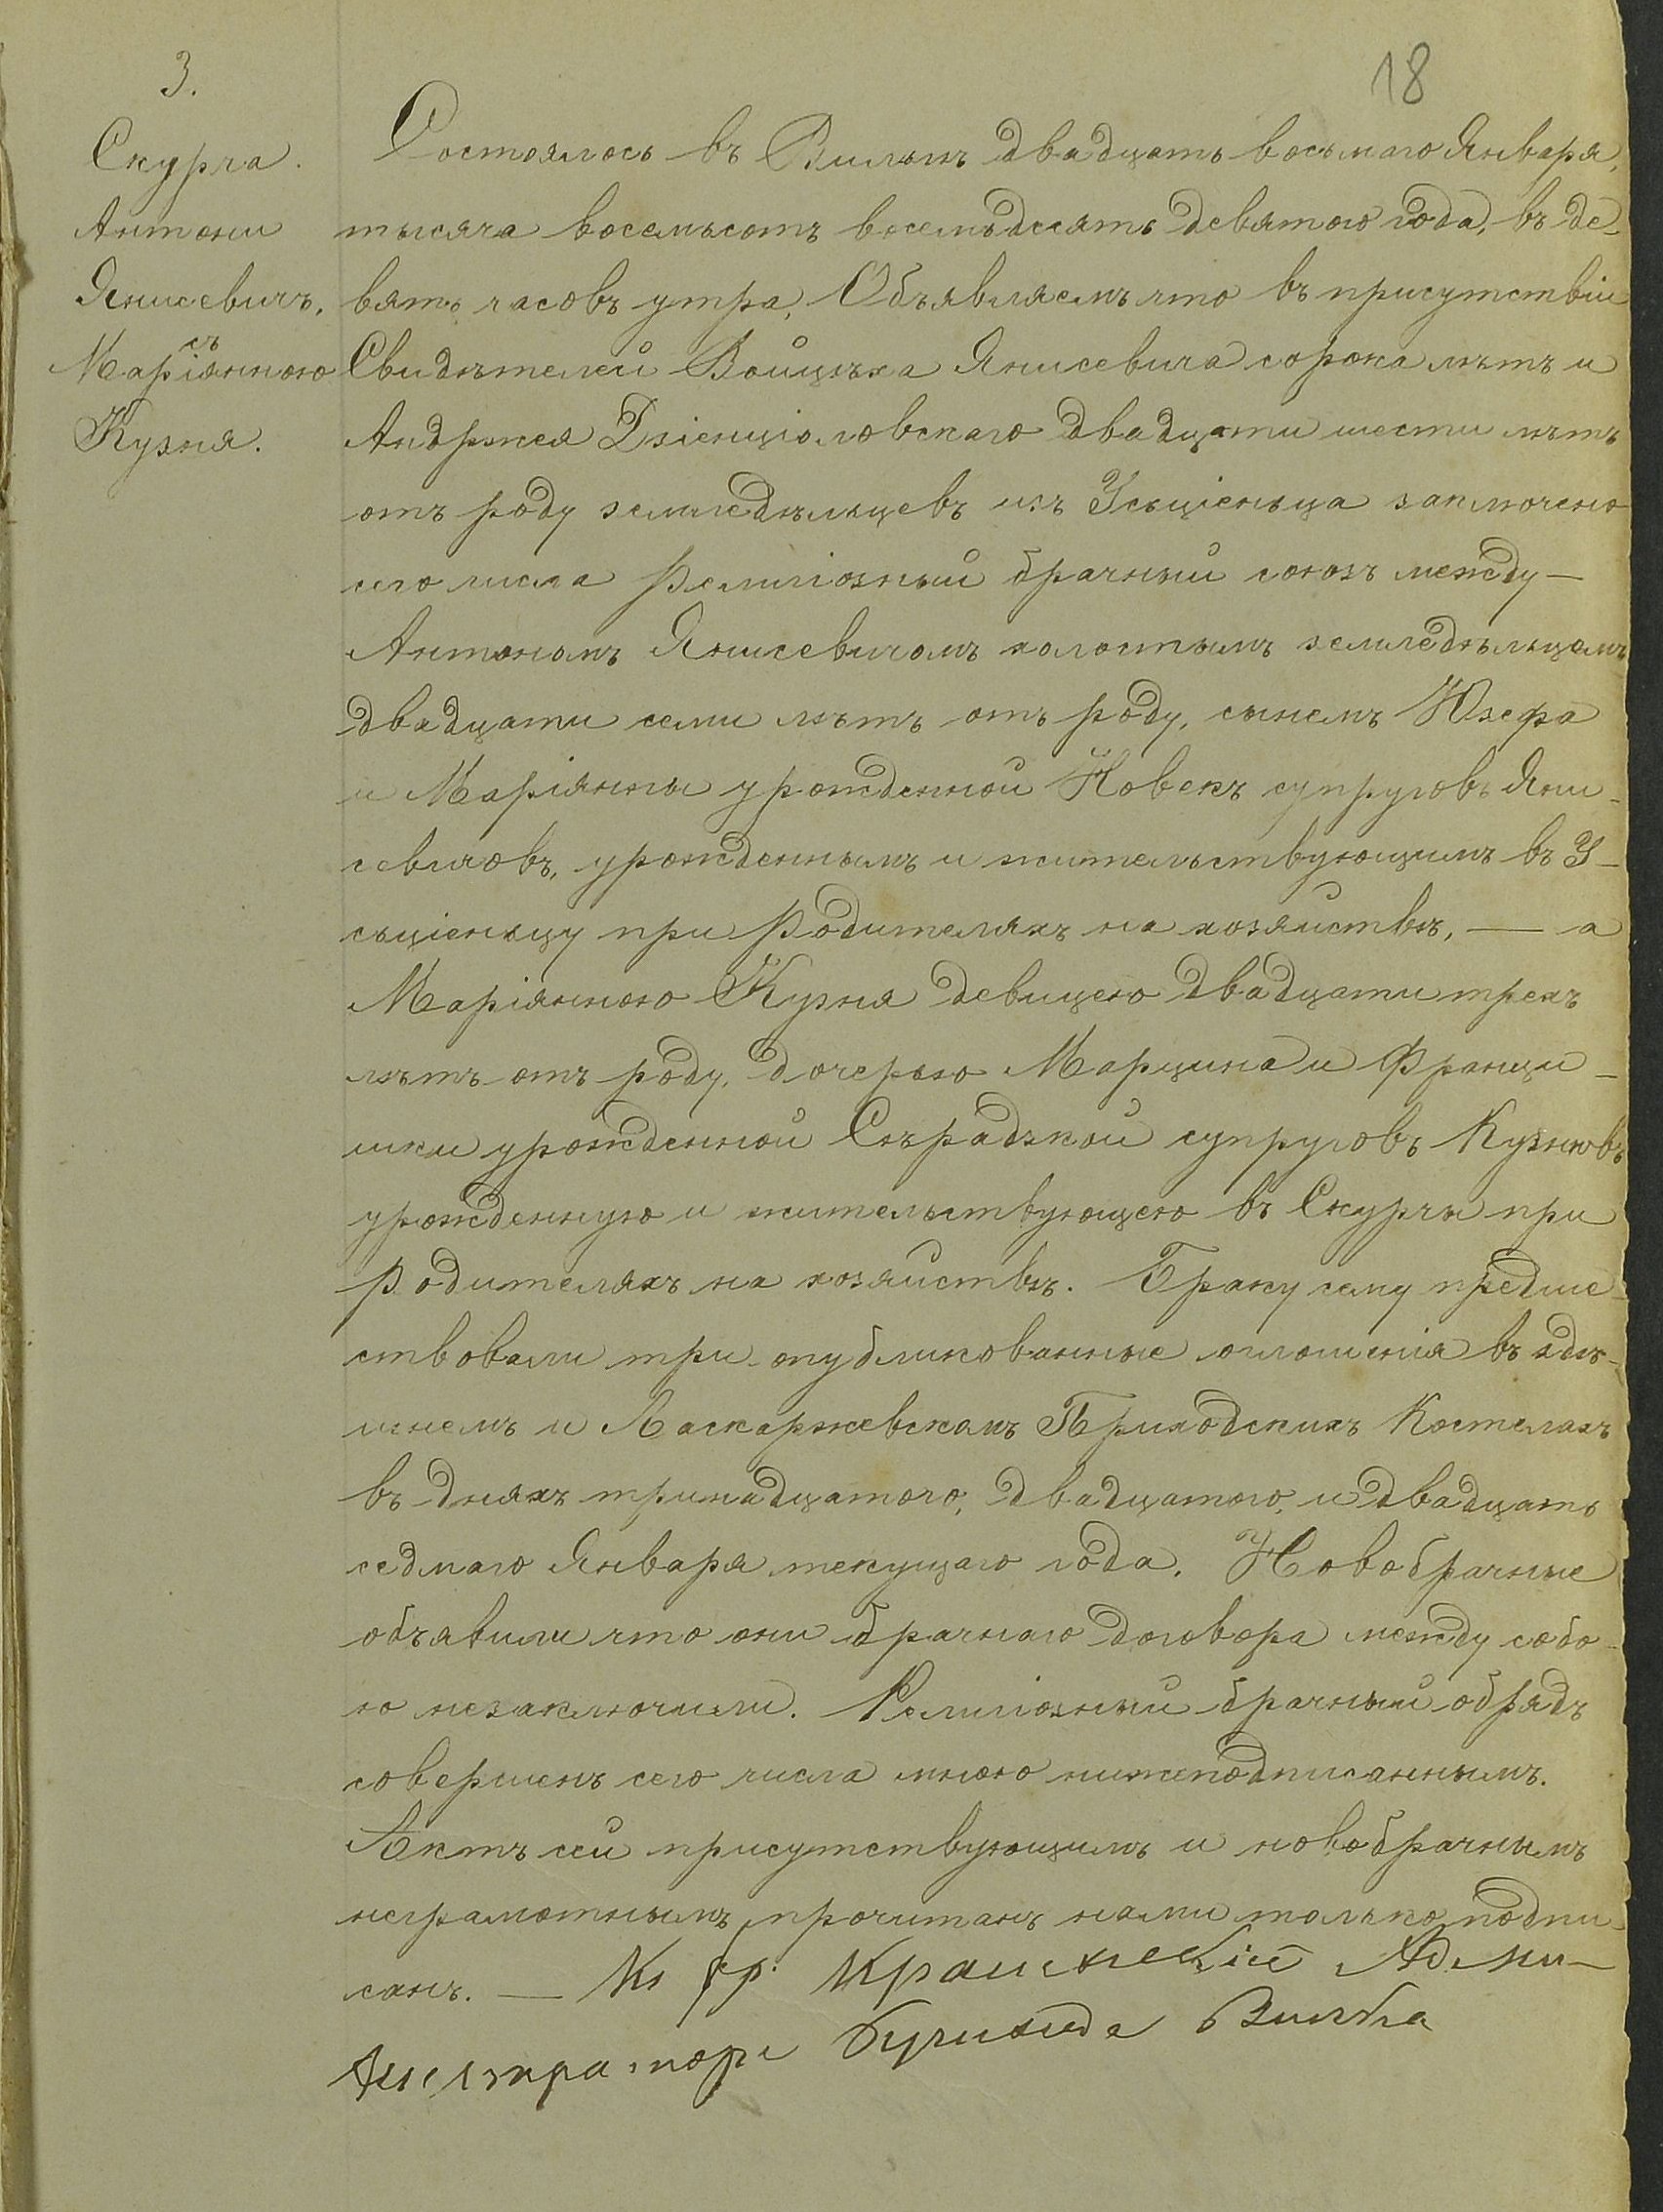 18
3.
Скурча.
Антони
Янисевичъ,
съ
Маріянною
Кузня.
Состоялось въ Вильгѣ двадцать восьмаго Января,
тысяча восемьсотъ восемьдесятъ девятого года, въ де-
вять часовъ утра, Объявляемъ что въ присутствіи
Свидѣтелей Войцѣха Янисевича сорока лѣтъ и
Анджея Дзіенціоловскаго двадцати шести лѣтъ
отъ роду земледѣльцевъ изъ Усьціеньца заключено
сего числа Религіозный брачный союзъ между —
Антонимъ Янисевичомъ холостымъ земледѣльцемъ
двадцати семи лѣтъ отъ роду, сыномъ Юзефа
и Маріянны урожденной Новекъ супруговъ Яни-
севичовъ, урожденнымъ и жительствующимъ въ У-
сьціеньцу при Родителяхъ на хозяйствѣ, — а
Маріянною Кузня девицею двадцати трехъ
лѣтъ отъ роду, дочерью Марцина и Францы-
шки урожденной Сѣрадзкой супруговъ Кузнювъ
урожденную и жительствующею въ Скурчы при
Родителяхъ на хозяйствѣ. Браку сему предше-
ствовали три опубликованные оглашенія въ здѣ-
шнемъ и Ласкаржевскомъ Приходскихъ Костелахъ
въ дняхъ тринадцатого, двадцатого, и двадцать
седмаго Января текущаго года. Новобрачные
объявили что они брачнаго договора между собо-
ю незаключили. Религіозный брачный обрядъ
совершенъ сего числа мною нижеподписаннымъ.
Актъ сей присутствующимъ и новобрачнымъ
неграмотнымъ, прочитанъ нами только подпи-
санъ. — Кс Фр. Адми-
нистраторъ Прихода Вильга